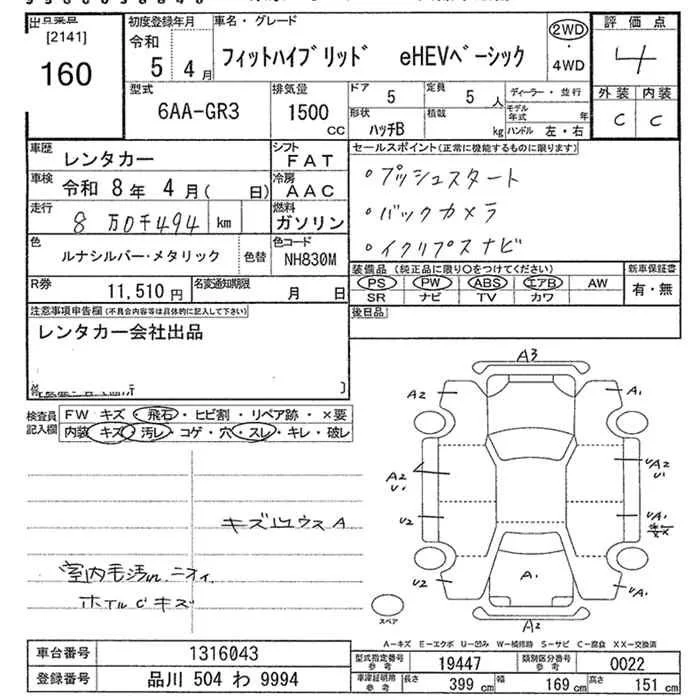 出品票番
[2141]
160
初度登録年月
令和
5 4月
車名・グレード
フィットハイブリッド eHEVベーシック
2WD
・
4WD
評価点
4
外装 内装
C C
型式
6AA-GR3
排気量
1500
CC
ドア
5
定員
5 人
ディーラー・並行
形状
ハッチB
積載
kg
モデル年式 年
ハンドル 左・右
車歴
レンタカー
シフト
FAT
車検
令和 8年 4月( 日)
冷房
AAC
走行
8万0千494 km
燃料
ガソリン
色
ルナシルバー・メタリック
色替
色コード
NH830M
R券
11,510円
名変通知期限
月 日
セールスポイント(正常に機能するものに限ります)
・プッシュスタート
・バックカメラ
・イクリプスナビ
装備品(純正品に限り○をつけてください)
PS PW ABS エアB AW
SR ナビ TV カワ
新車保証書
有・無
注意事項申告欄(不具合内容等は具体的に記入して下さい)
レンタカー会社出品
後日品
検査員
記入欄
FW キズ・飛石・ヒビ割・リペア跡・×要
内装 キズ・汚レ・コゲ・穴・スレ・キレ・破レ
A3
A2
A1
A2
U1
UA2
U1
U2
UA1
U2
A1
UA1
A2
室内毛汚れ ニオイ
ホイルCキズ
スペア
A-キズ E-エクボ U-凹み W-補修跡 S-サビ C-腐食 XX-交換済
車台番号
1316043
登録番号
品川 504 わ 9994
型式指定番号
参考
19447
類別区分番号
参考
0022
車庫証明用
参考
長さ
399 cm
幅
169 cm
高さ
151 cm